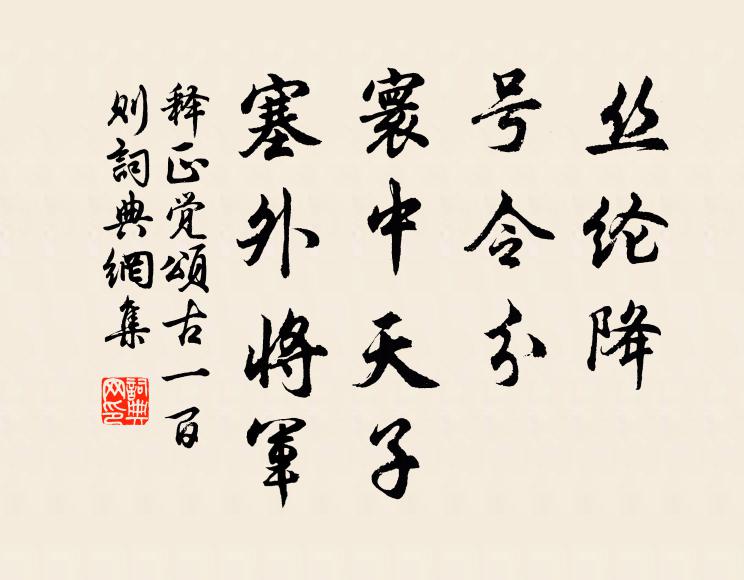 丝纶降
号令分
寰中天子
塞外将军
释正觉颂古一百
则詞典網集
詞典
网印